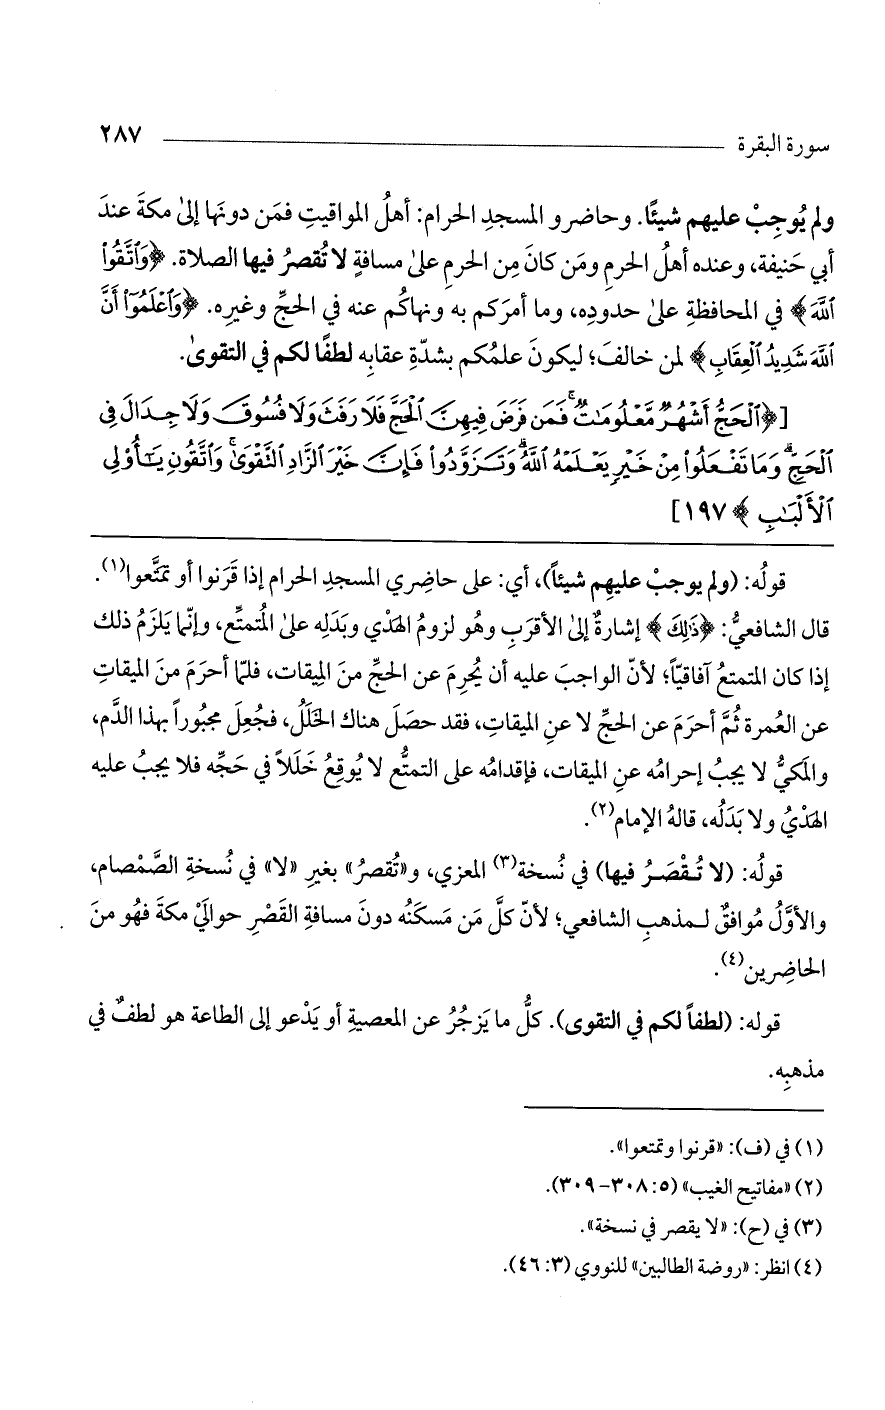 سورة البقرة ٢٨٧
ولم يُوجِبْ عليهم شيئًا. وحاضرو المسجدِ الحرام: أهلُ المواقيتِ فمَن دونَها إلىٰ مكةَ عندَ
أبي حَنيفة، وعنده أهلُ الحرمِ ومَن كانَ مِن الحرمِ علىٰ مسافةٍ لا تُقصرُ فيها الصلاة. ﴿وَٱتَّقُوا۟
ٱللَّهَ﴾ في المحافظةِ علىٰ حدودِه، وما أمرَكم به ونهاكُم عنه في الحجِّ وغيرِه. ﴿وَٱعْلَمُوٓا۟ أَنَّ
ٱللَّهَ شَدِيدُ ٱلْعِقَابِ﴾ لمن خالفَ؛ ليكونَ علمُكم بشدّةِ عقابِه لطفًا لكم في التقوىٰ.
[﴿ٱلْحَجُّ أَشْهُرٌ مَّعْلُومَٰتٌ ۚ فَمَن فَرَضَ فِيهِنَّ ٱلْحَجَّ فَلَا رَفَثَ وَلَا فُسُوقَ وَلَا جِدَالَ فِى
ٱلْحَجِّ ۗ وَمَا تَفْعَلُوا۟ مِنْ خَيْرٍ يَعْلَمْهُ ٱللَّهُ ۗ وَتَزَوَّدُوا۟ فَإِنَّ خَيْرَ ٱلزَّادِ ٱلتَّقْوَىٰ ۚ وَٱتَّقُونِ يَٰٓأُو۟لِى
ٱلْأَلْبَٰبِ﴾ ١٩٧]
قولُه: (ولم يوجبْ عليهِم شيئاً)، أي: على حاضِري المسجدِ الحرام إذا قَرَنوا أو تمتَّعوا(١).
قال الشافعيُّ: ﴿ذَٰلِكَ﴾ إشارةٌ إلىٰ الأقرَبِ وهُو لزومُ الهَدْيِ وبَدَلِه علىٰ المُتمتِّع، وإنّما يَلزَمُ ذلك
إذا كان المتمتعُ آفاقيّاً؛ لأنّ الواجبَ عليه أن يُحرِمَ عن الحجِّ منَ المِيقات، فلمّا أحرَمَ منَ الميقاتِ
عن العُمرة ثُمَّ أحرَمَ عن الحجِّ لا عنِ الميقاتِ، فقد حصَلَ هناك الخَلَلُ، فجُعِلَ مجبُوراً بهذا الدَّم،
والمَكيُّ لا يجبُ إحرامُه عنِ الميقات، فإقدامُه على التمتُّع لا يُوقِعُ خَلَلاً في حَجِّه فلا يجبُ عليه
الهَدْيُ ولا بَدَلُه، قالهُ الإمام(٢).
قولُه: (لا تُقْصَرُ فيها) في نُسخة(٣) المعزي، و«تُقصرُ» بغيرِ «لا» في نُسخةِ الصَّمْصام،
والأوَّلُ مُوافقٌ لـمذهبِ الشافعي؛ لأنّ كلَّ مَن مَسكَنُه دونَ مسافةِ القَصْرِ حوالَيْ مكةَ فهُو منَ
الحاضِرين(٤).
قوله: (لطفاً لكم في التقوى). كلُّ ما يَزجُرُ عن المعصيةِ أو يَدْعو إلى الطاعة هو لطفٌ في
مذهبِه.
(١) في (ف): «قرنوا وتمتعوا».
(٢) «مفاتيح الغيب» (٥: ٣٠٨-٣٠٩).
(٣) في (ح): «لا يقصر في نسخة».
(٤) انظر: «روضة الطالبين» للنووي (٣: ٤٦).